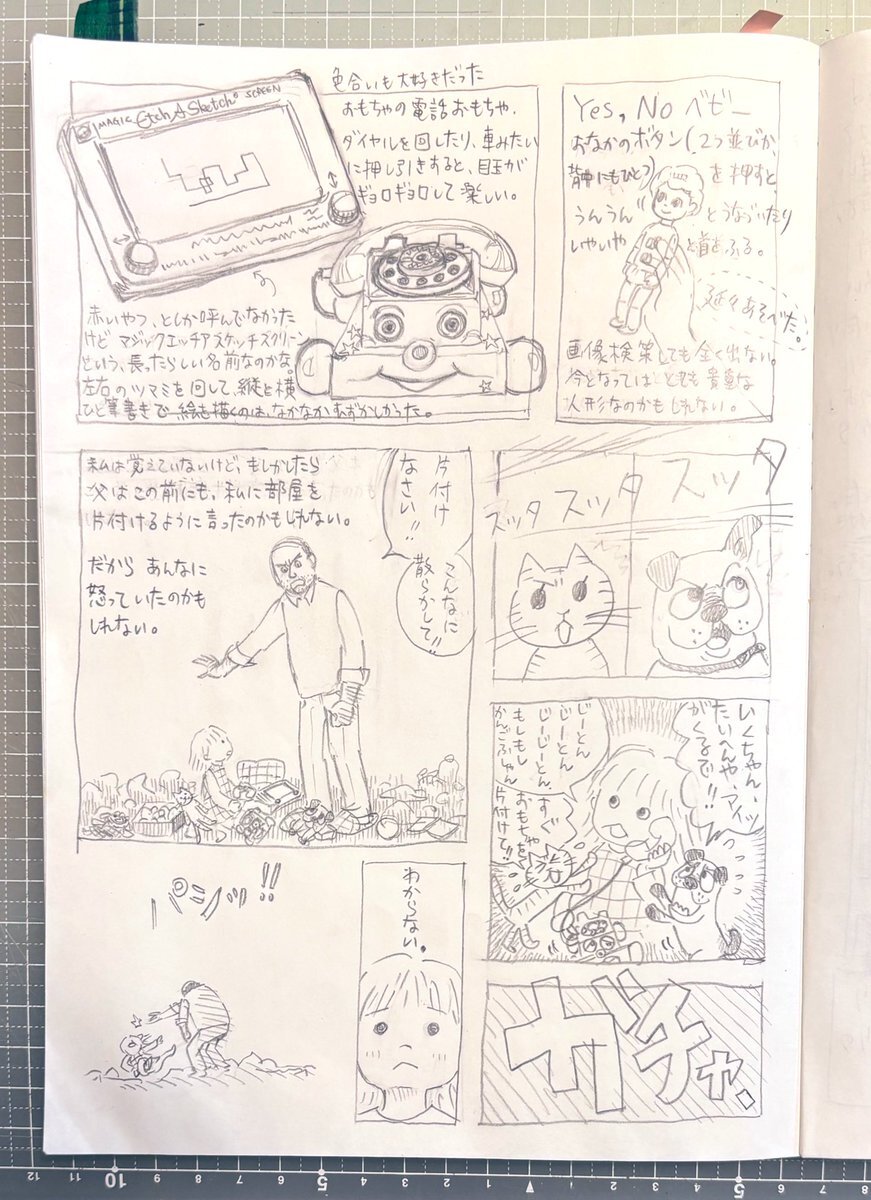 Yes, No ベビー
おなかのボタン(2つ並びか、
背中にもひとつ)を押すと
うんうん とうなづいたり
いやいや と首をふる。
延々あそべた。
画像検索しても全く出ない。
今となってはとても貴重な
人形なのかもしれない。
色合いも大好きだった
おもちゃの電話おもちゃ.
ダイヤルを回したり、車みたい
に押し引きすると、目玉が
ギョロギョロして楽しい。
MAGIC Etch A Sketch® SCREEN
赤いやつ、としか呼んでなかった
けど マジックエッチアスケッチスクリーン
という、長ったらしい名前なのかな。
左右のツマミを回して、縦と横
ひと筆書きで絵を描くのは、なかなかむずかしかった。
スッタ スッタ スッタ
いくちゃん、
たいへんや、アイツ
がくるで!!
じーとん
じーとん
じーじーとん、
もしもし
かんごふしゃん
すぐ
おもちゃを
片付けて!!
ガチャ.
片付け
なさい!!
こんなに
散らかして!!
私は覚えていないけど、もしかしたら
父はこの前にも、私に部屋を
片付けるように言ったのかもしれない。
だから あんなに
怒っていたのかも
しれない。
わからない。
パシッ!!